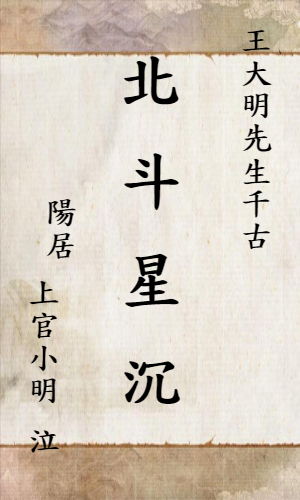 王大明先生千古
北斗星沉
陽居
上官小明 泣